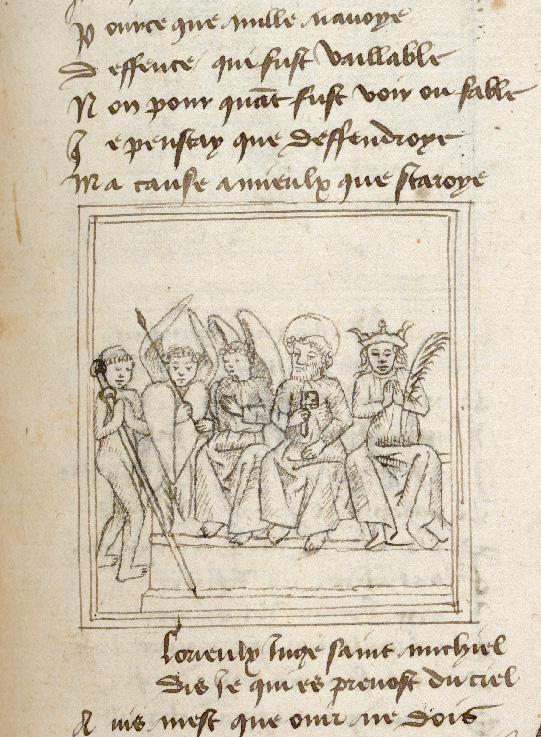 P ource que nulle n avoye
D effence qui fust vaillable
N on pour quāt fust voir ou fable
J e pensay que deffendroye
M a cause au mieulx que scaroye
Glorieulx juge saint michiel
Dis je qui es prevost du ciel
A vis mest que ouir ne dois